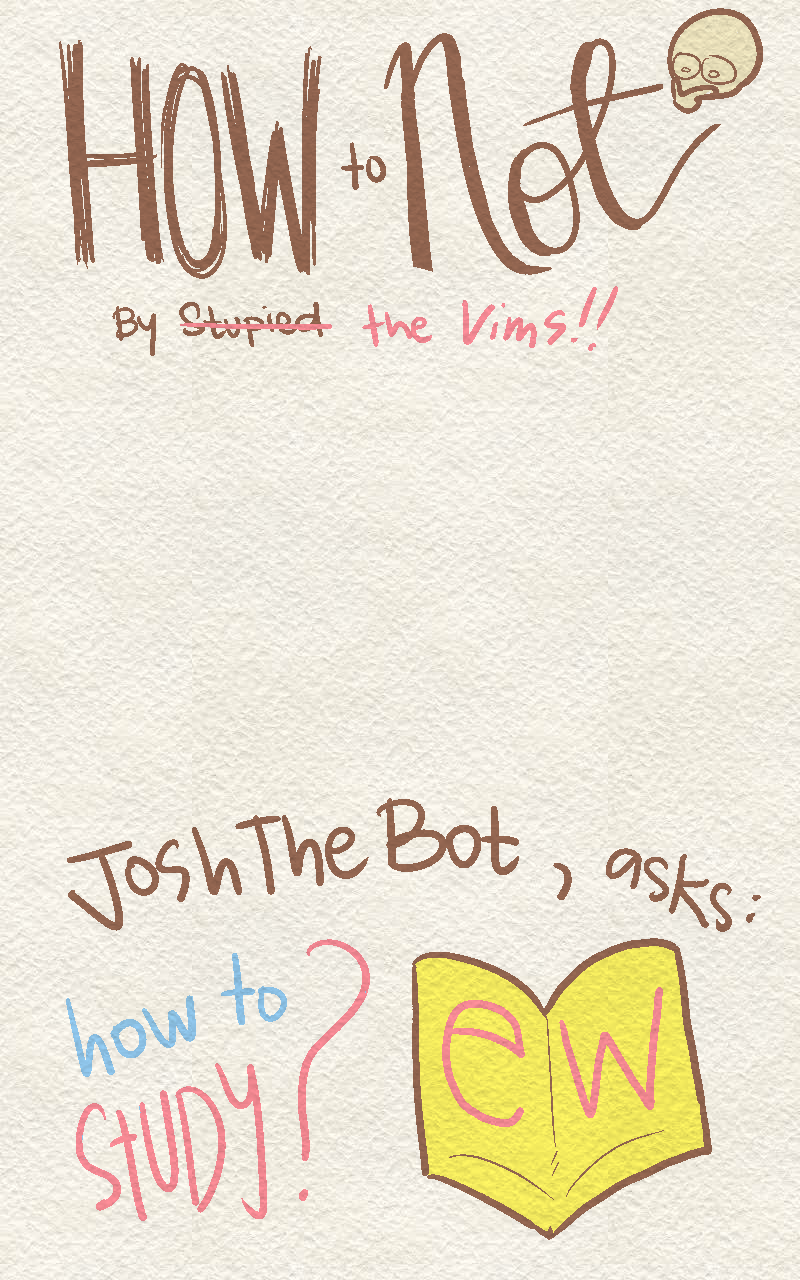 HOW to Not
By Stupied the Vims!!
JoshTheBot, asks:
how to
STUDY?
ew